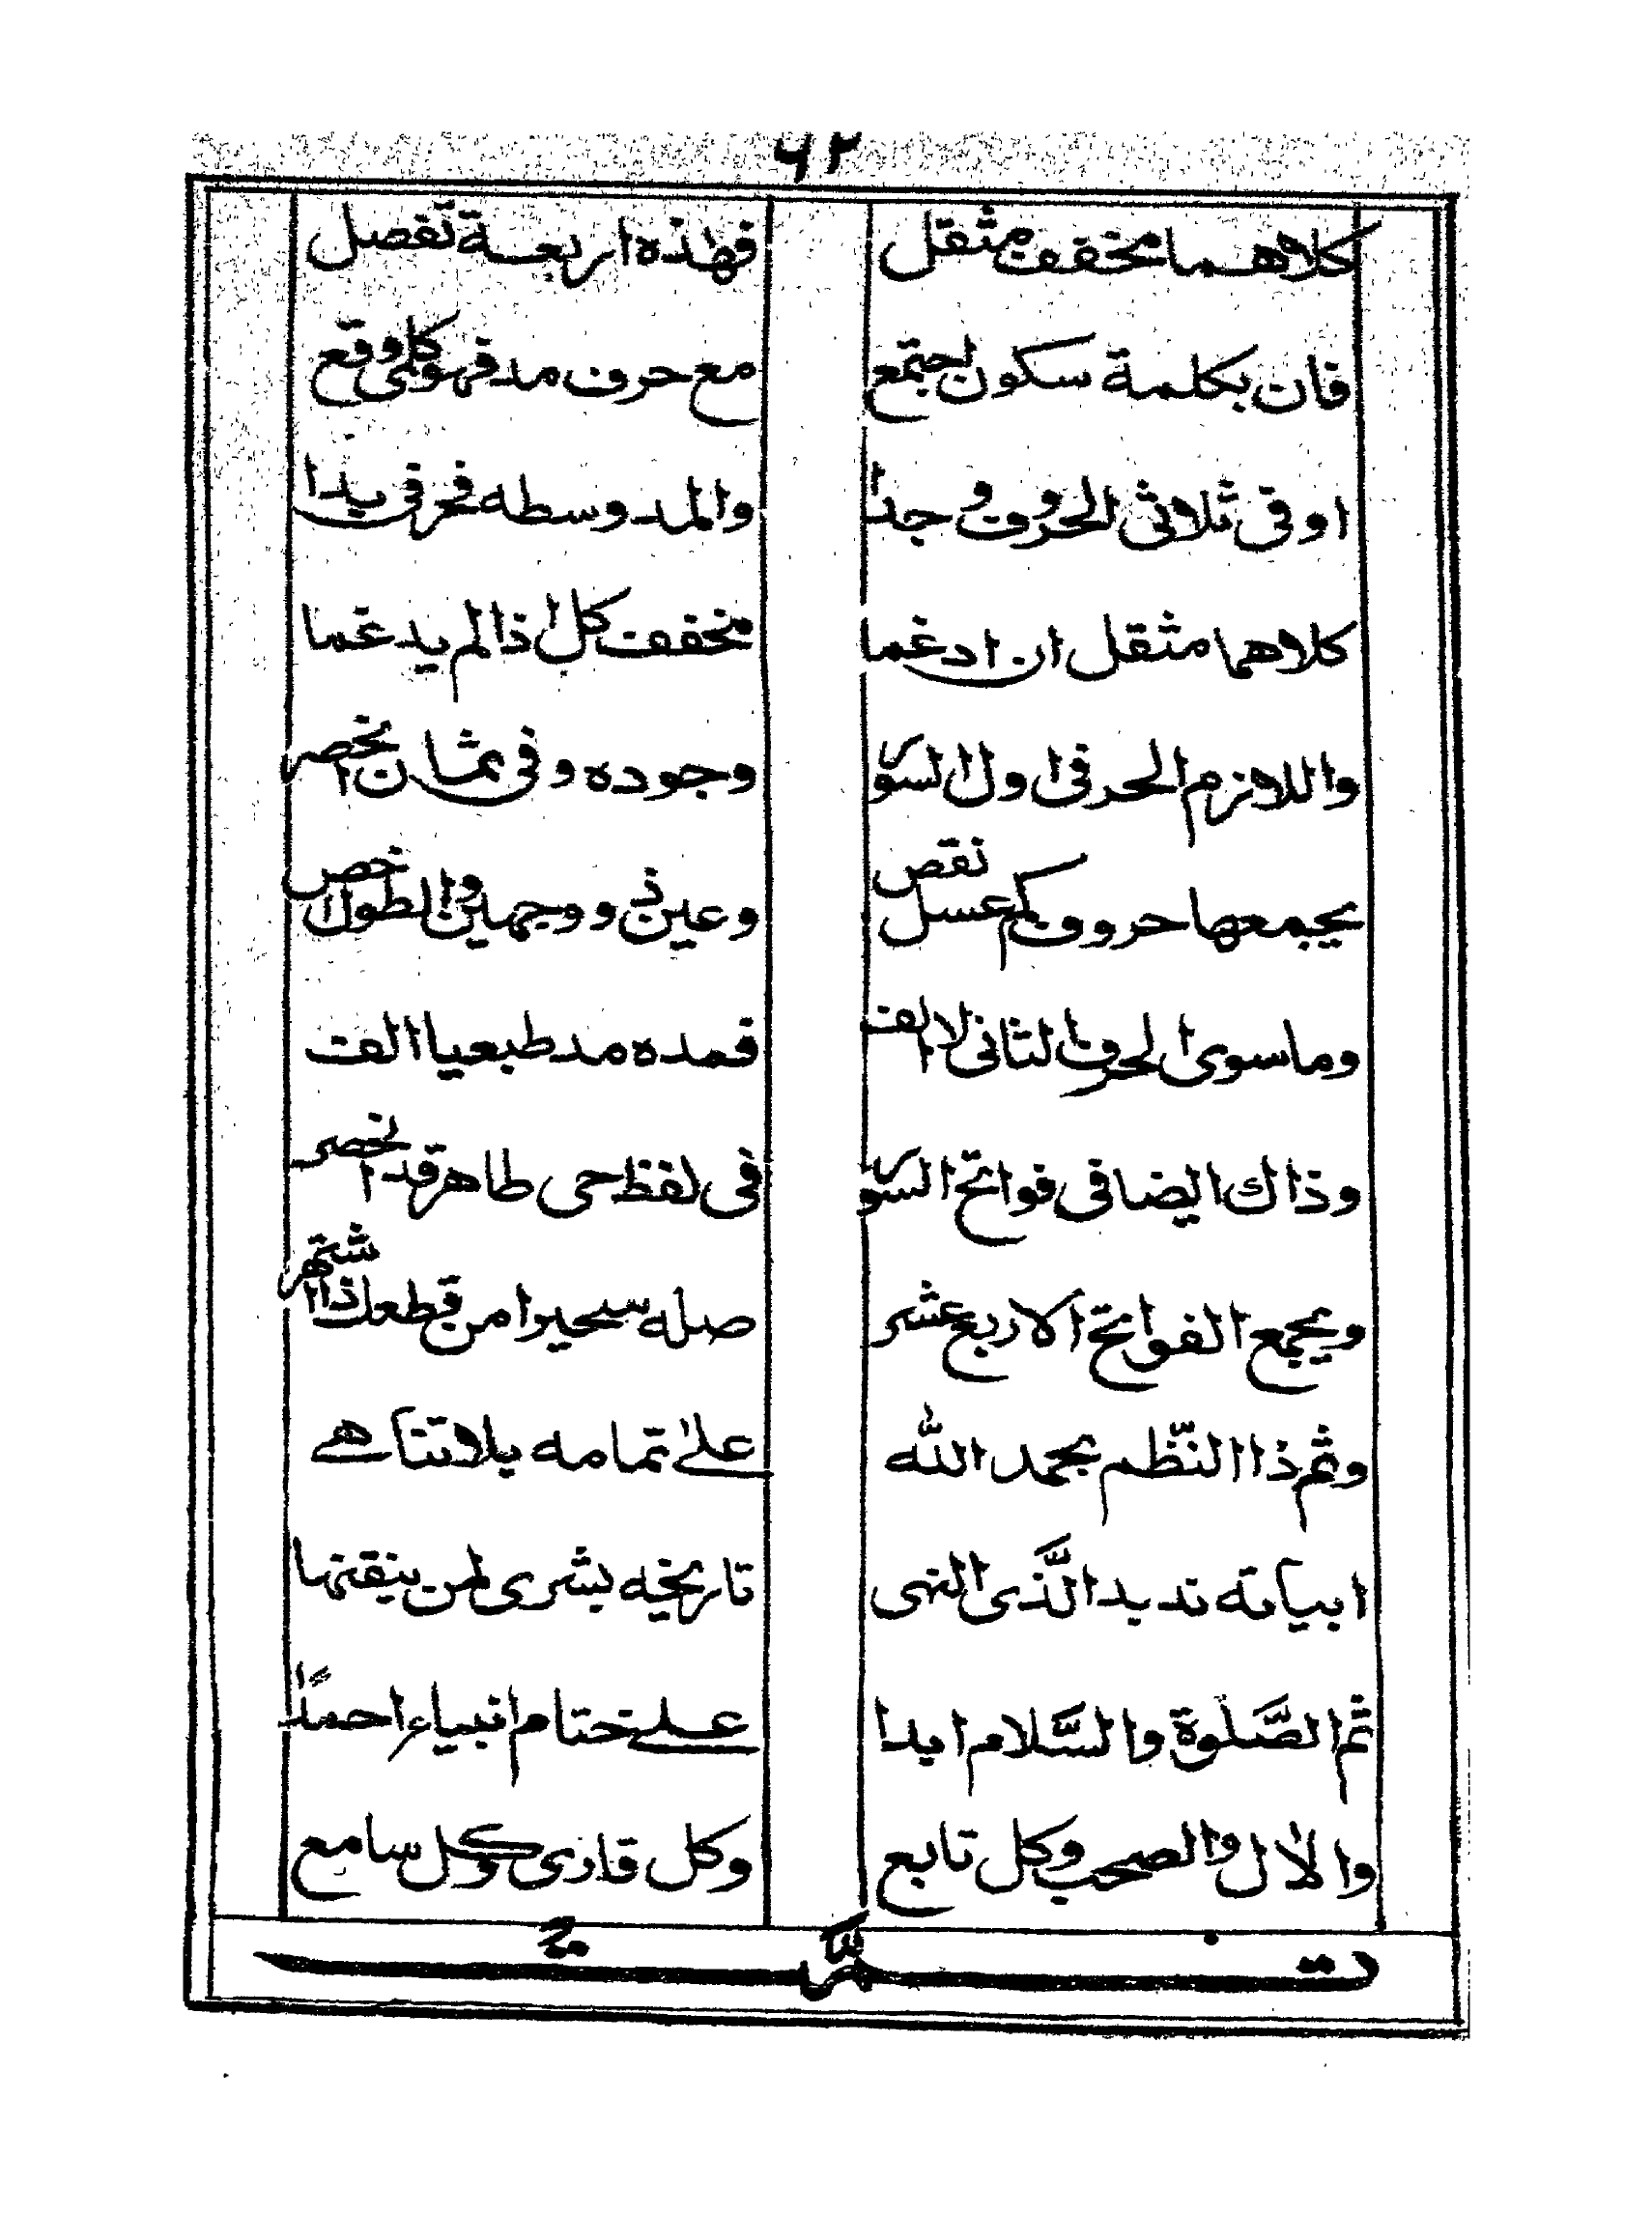 ٦٢
كلاهما مخفف مثقل فهذه اربعة تفصل
فان بكلمة سكون اجتمع مع حرف مد فهو كلمى وقع
او فى ثلاثى الحروف وجدا والمد وسطه فحرفى يدا
كلاهما مثقل ان ادغما مخفف كل اذا لم يدغما
واللازم الحرفى اول السور وجوده وفى ثمان انحصر
يجمعها حروف كم عسل نقص وعين ذو وجهين والطول اخص
وما سوى الحرف الثانى لا الف فمده مد طبعيا الف
وذاك ايضا فى فواتح السور فى لفظ حى طاهر قد انحصر
ويجمع الفواتح الاربع عشر صله سحيرا من قطعك ذا اشتهر
وتم ذا النّظم بحمد اللّه على تمامه بلا تناهى
ابياته ند بدا لذى النهى تاريخه بشرى لمن يتقنها
ثم الصّلوة والسّلام ابدا على ختام انبياء احمدًا
والال والصحب وكل تابع وكل قارى وكل سامع